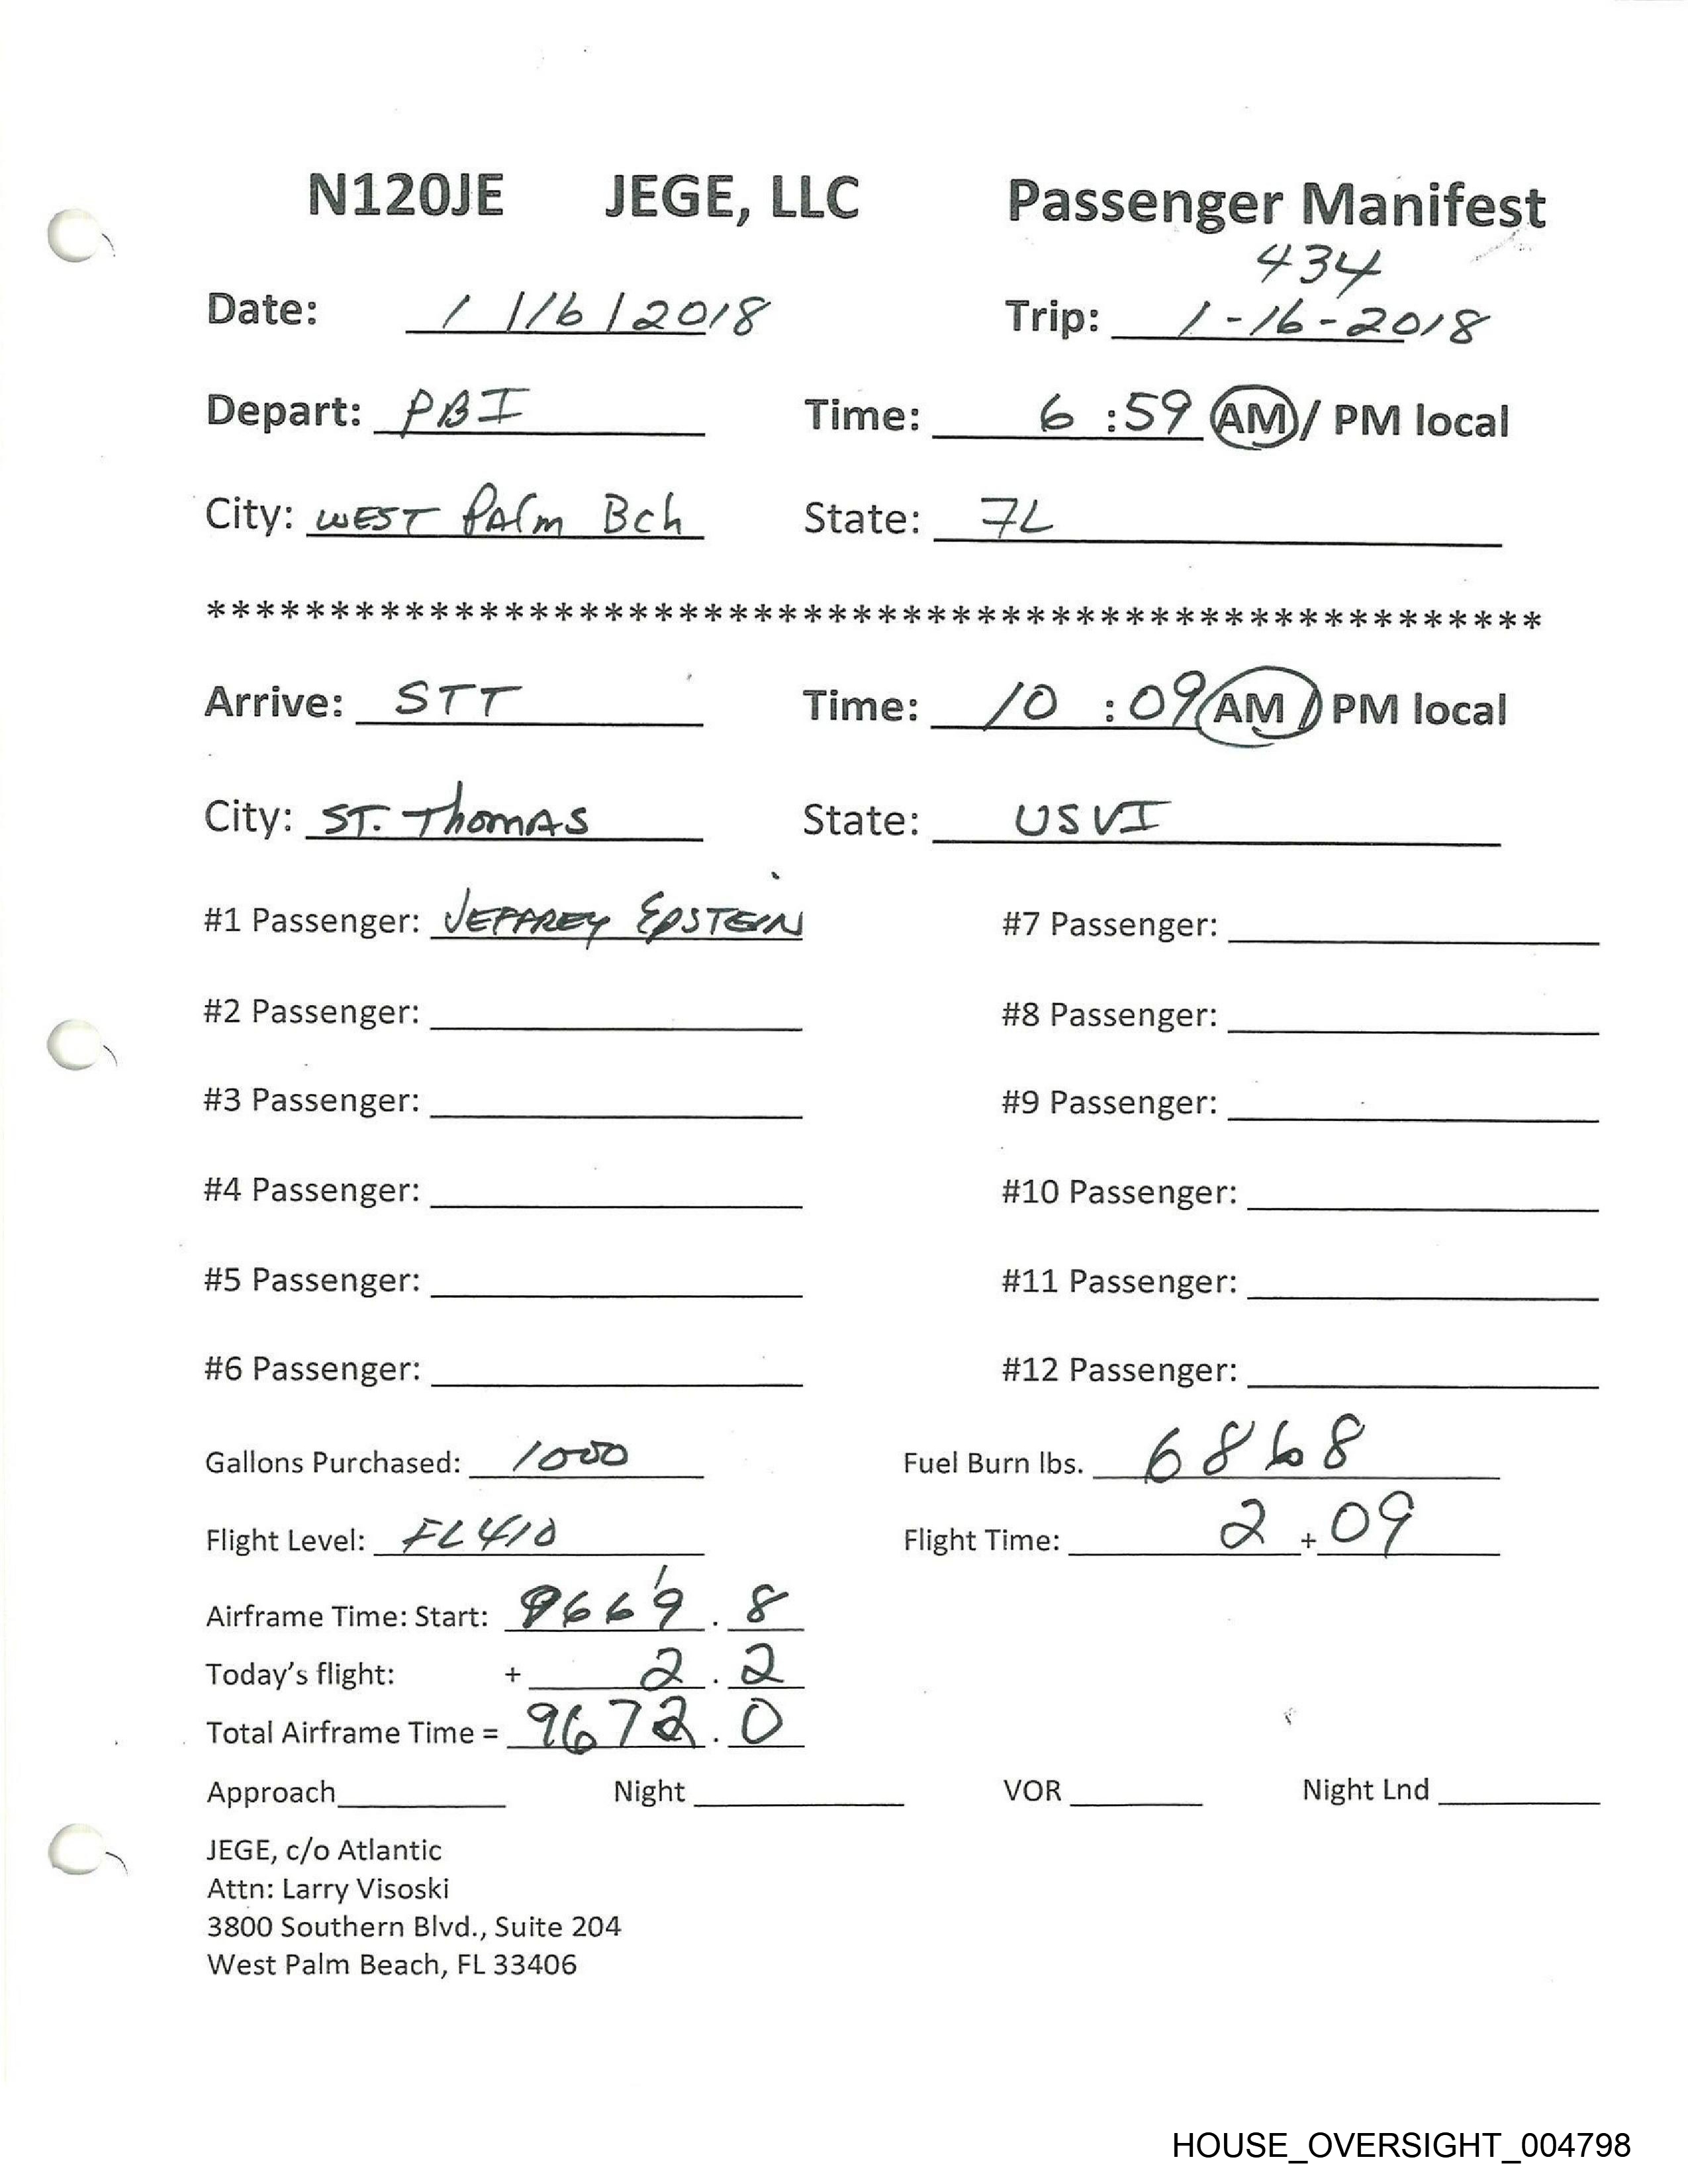 N120JE JEGE, LLC Passenger Manifest
434
Date: 1/16/2018 Trip: 1-16-2018
Depart: PBI Time: 6:59 AM / PM local
City: WEST PAlm Bch State: FL
******************************************************
Arrive: STT Time: 10:09 AM / PM local
City: ST. ThomAS State: USVI
#1 Passenger: JEFFREY EPSTEIN #7 Passenger:
#2 Passenger: #8 Passenger:
#3 Passenger: #9 Passenger:
#4 Passenger: #10 Passenger:
#5 Passenger: #11 Passenger:
#6 Passenger: #12 Passenger:
Gallons Purchased: 1000 Fuel Burn lbs. 6868
Flight Level: FL410 Flight Time: 2 + 09
1
Airframe Time: Start: 9669.8
Today's flight: + 2.2
Total Airframe Time = 9672.0
Approach Night VOR Night Lnd
JEGE, c/o Atlantic
Attn: Larry Visoski
3800 Southern Blvd., Suite 204
West Palm Beach, FL 33406
HOUSE_OVERSIGHT_004798